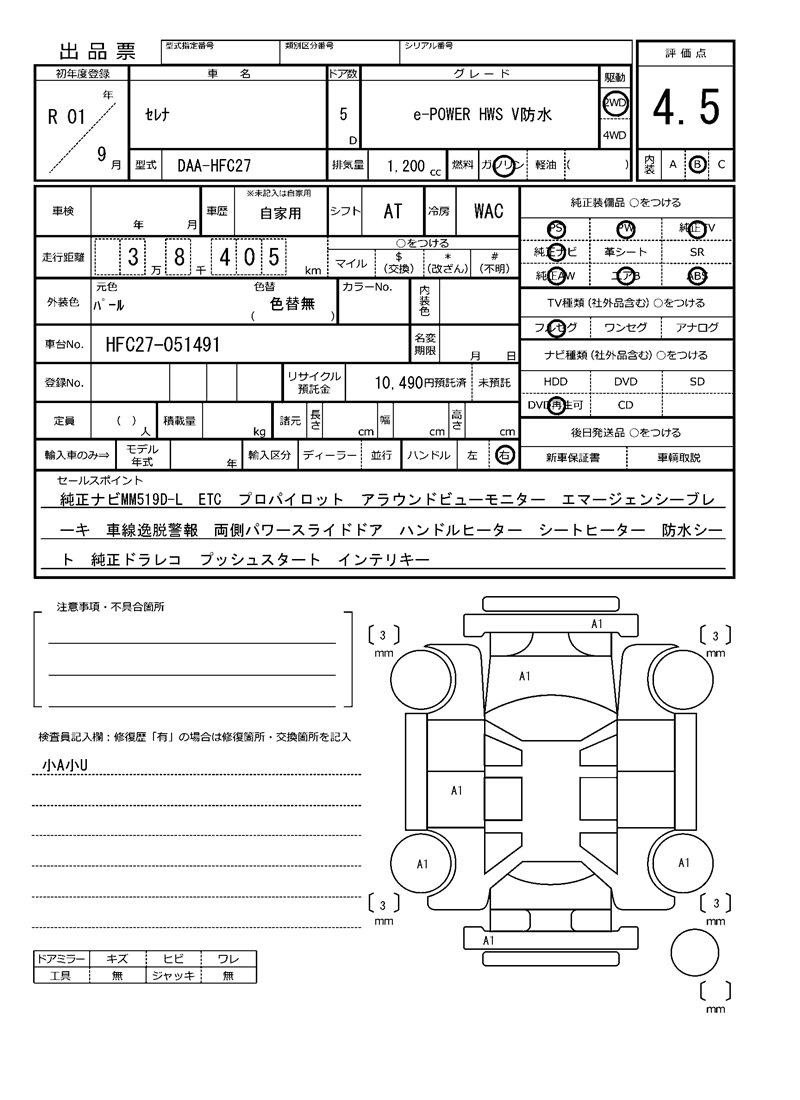 出品票 型式指定番号 類別区分番号 シリアル番号 評価点
初年度登録 車名 ドア数 グレード 駆動
R 01 年 9 月 セレナ 5 D e-POWER HWS V防水 2WD 4.5
4WD
型式 DAA-HFC27 排気量 1,200 cc 燃料 ガソリン 軽油 ( ) 内装 A B C
車検 年 月 車歴 ※未記入は自家用 自家用 シフト AT 冷房 WAC 純正装備品 ○をつける
PS PW 純正TV
走行距離 3 万 8 千 4 0 5 km ○をつける 純正ナビ 革シート SR
マイル $ (交換) * (改ざん) # (不明) 純正AW エアB ABS
外装色 元色 パール 色替 色替無 ( ) カラーNo. 内装色 TV種類(社外品含む)○をつける
フルセグ ワンセグ アナログ
車台No. HFC27-051491 名変期限 月 日 ナビ種類(社外品含む)○をつける
登録No. リサイクル預託金 10,490円預託済 未預託 HDD DVD SD
DVD再生可 CD
定員 ( ) 人 積載量 kg 諸元 長さ cm 幅 cm 高さ cm 後日発送品 ○をつける
輸入車のみ⇒ モデル年式 年 輸入区分 ディーラー 並行 ハンドル 左 右 新車保証書 車輌取説
セールスポイント
純正ナビMM519D-L ETC プロパイロット アラウンドビューモニター エマージェンシーブレ
ーキ 車線逸脱警報 両側パワースライドドア ハンドルヒーター シートヒーター 防水シー
ト 純正ドラレコ プッシュスタート インテリキー
注意事項・不具合箇所
検査員記入欄：修復歴「有」の場合は修復箇所・交換箇所を記入
小A小U
ドアミラー キズ ヒビ ワレ
工具 無 ジャッキ 無
A1
3 mm 3 mm
A1
A1
A1 A1
3 mm 3 mm
A1
mm